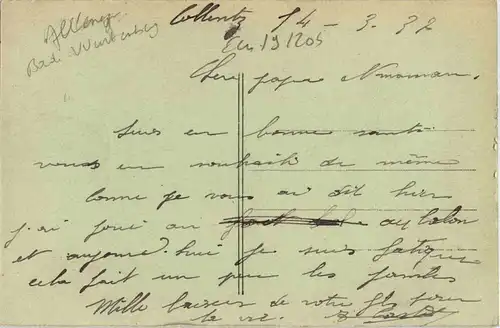 Allemagne
Bade Wurtemberg
14 - 3 - 32
Chere papa Maman.
Suis en bonne santé
vous en souhaite de même
comme je vous ai dit hier
j'ai joué au foot balle au balon
et aujourd'hui je suis fatigué
cela fait un peu les jambes
Mille baiser de votre fils pour
la vie.